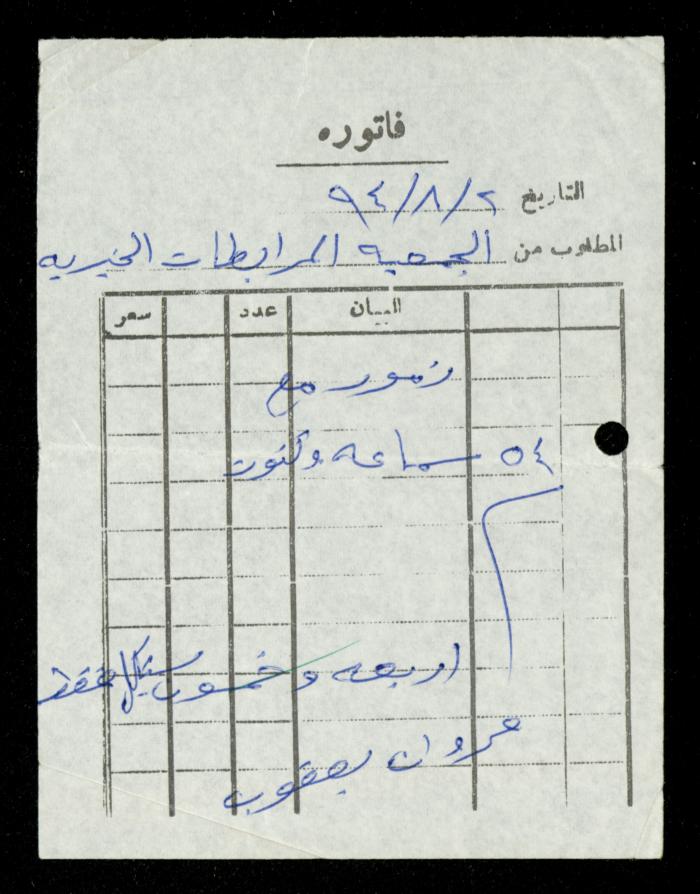 فاتوره
التاريخ ٩٤/٨/٢
المطلوب من الجمعية المرابطات الخيريه
البيان عدد سعر
زمور مع
٥٤ سماعه وكتوت
اربعه وخمسون شيكل فقط
مروان يعقوب